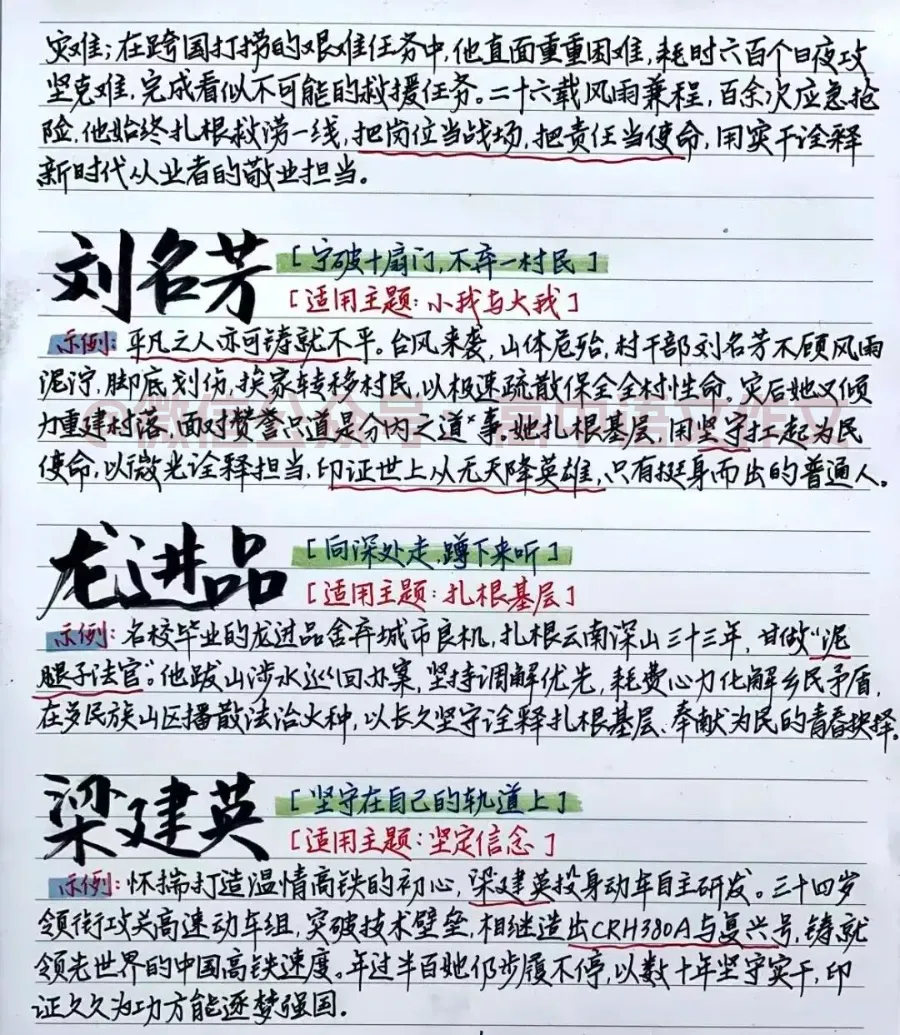 灾难；在跨国打捞的艰难任务中，他直面重重困难，耗时六百个日夜攻
坚克难，完成看似不可能的救援任务。二十六载风雨兼程，百余次应急抢
险，他始终扎根救涝一线，把岗位当战场，把责任当使命，用实干诠释
新时代从业者的敬业担当。
刘名芳
[宁破十扇门，不弃一村民]
[适用主题：小我与大我]
示例：平凡之人亦可铸就不平。台风来袭，山体危殆，村干部刘名芳不顾风雨
泥泞，脚底划伤，挨家转移村民，以极速疏散保全全村性命。灾后她又倾
力重建村落，面对赞誉只道是分内之道事，她扎根基层，用坚守扛起为民
使命，以微光诠释担当，印证世上从无天降英雄，只有挺身而出的普通人。
龙进品
[向深处走，蹲下来听]
[适用主题：扎根基层]
示例：名校毕业的龙进品舍弃城市良机，扎根云南深山三十三年，甘做“泥
腿子法官”。他跋山涉水巡回办案，坚持调解优先，耗费心力化解乡民矛盾，
在多民族山区播散法治火种，以长久坚守诠释扎根基层、奉献为民的青春抉择。
梁建英
[坚守在自己的轨道上]
[适用主题：坚定信念]
示例：怀揣打造温情高铁的初心，梁建英投身动车自主研发。三十四岁
领衔攻关高速动车组，突破技术壁垒，相继造出CRH380A与复兴号，铸就
领先世界的中国高铁速度。年过半百她仍步履不停，以数十年坚守实干，印
证久久为功方能逐梦强国。